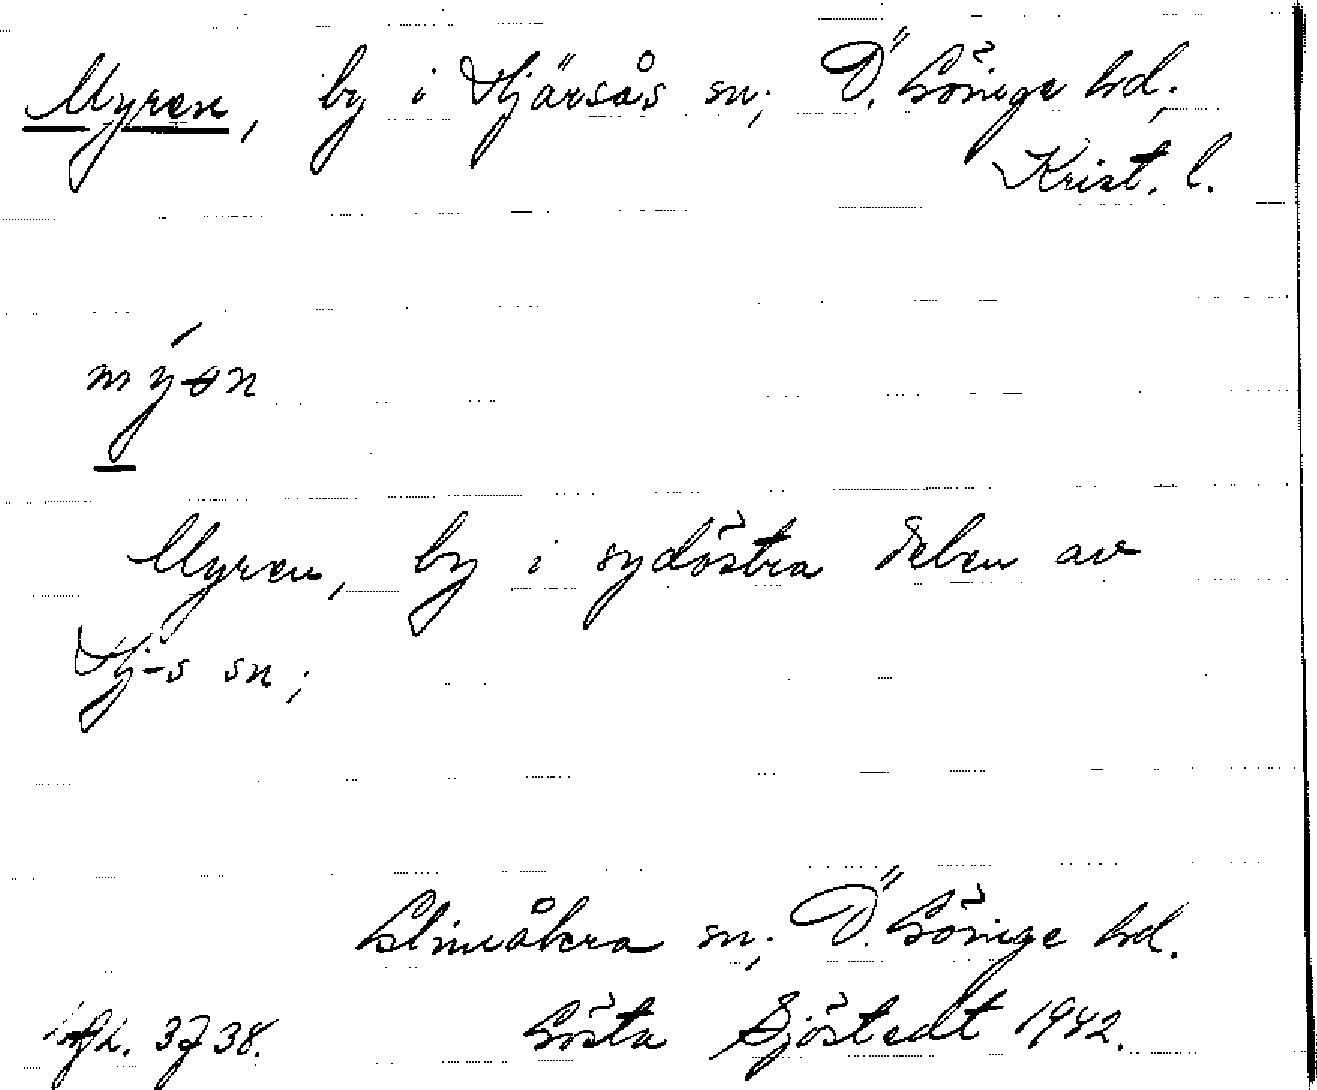 Myren, by i Hjärsås sn; Ö. Göinge hd;
Krist. l.
mýən
Myren, by i sydöstra delen av
Hj-s sn;
Glimåkra sn; Ö. Göinge hd.
3738. Gösta Sjöstedt 1942.